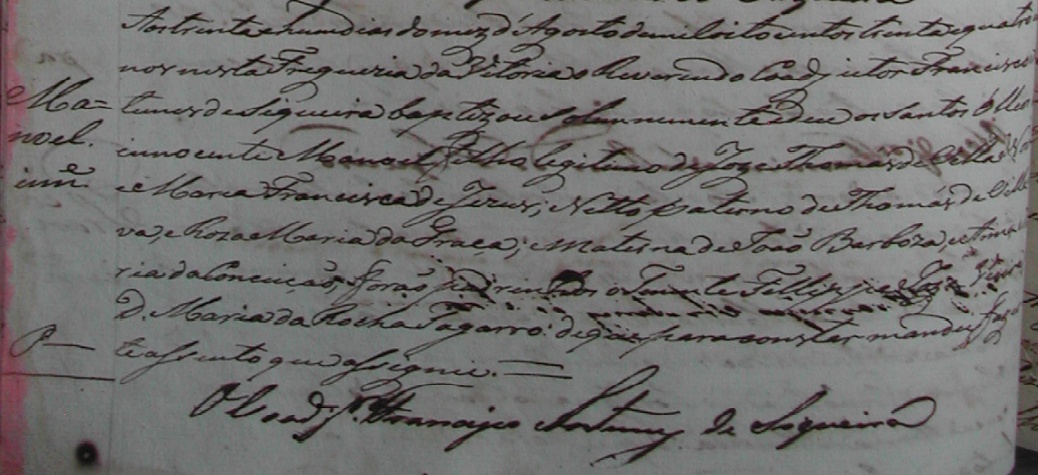 Aos trinta e hum dias do mez d'Agosto de mil oito centos trinta e quatro
nos nesta Freguezia da Vitoria o Reverendo Coadjuctor Francisco
Ma= tunes de Siqueira baptizou solemnemente e deu os santos óleos
noel. innocente Manoel, filho legitimo de Joze Thomás de Villa
inn.e e Maria Francisca de Jezus; Netto paterno de Thomás de Villa
va, e Roza Maria da Graça; e Materno de João Barboza, e
ria da Conceição, forão padrinhos o Tenente Fillippe Joze
D. Maria da Rocha Tagarro: de que para constar mandei faz
P te assento que assignei. =
O Coadj.r Francisco Antunes de Siqueira